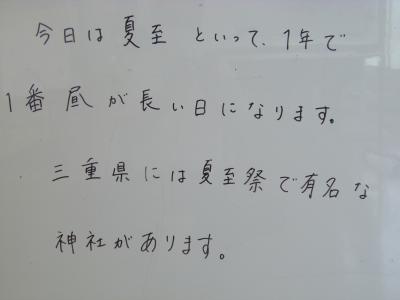 今日は夏至といって、1年で
1番昼が長い日になります。
三重県には夏至祭で有名な
神社があります。